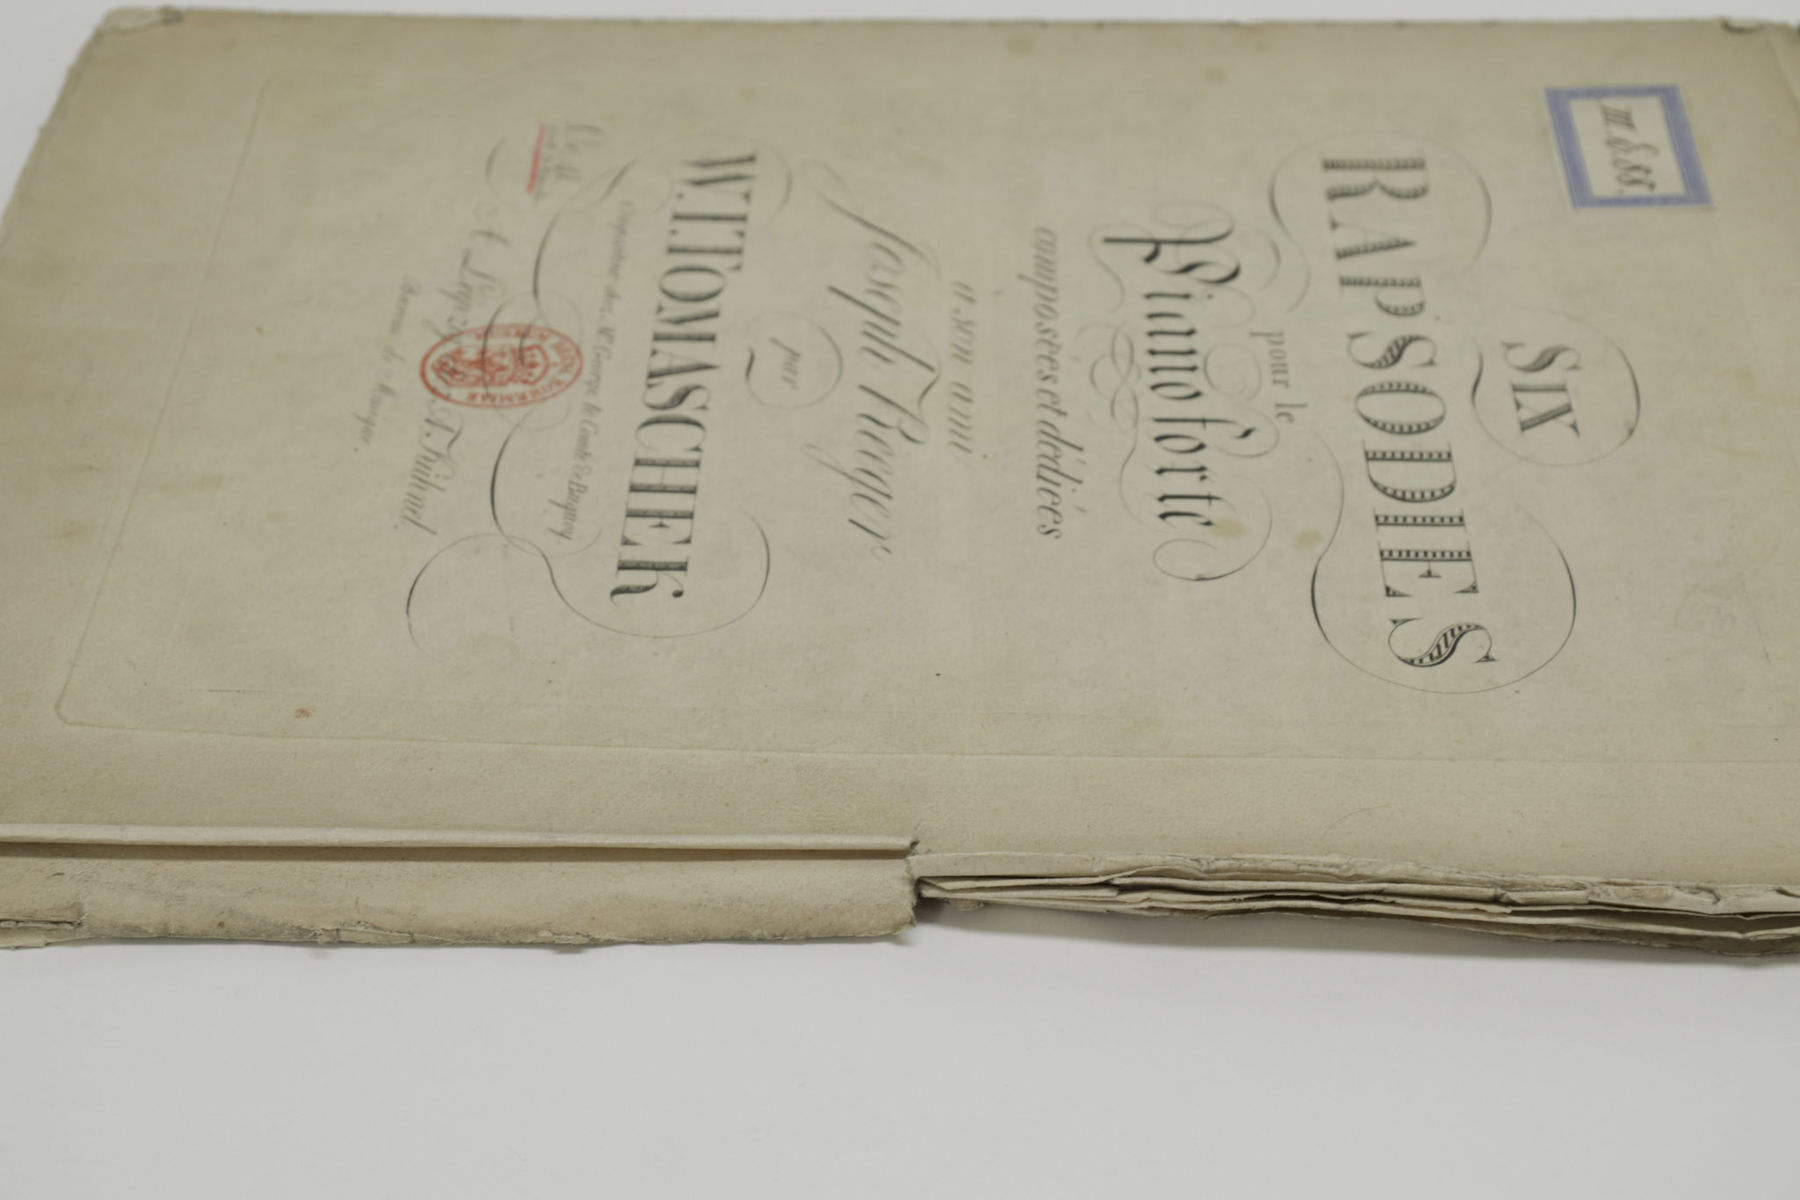 SIX
RAPSODIES
pour le
Pianoforte
composées et dédiées
a son ami
Joseph Rieger
par
W.I.TOMASCHEK
Compositeur chez Mr. George le Comte de Buquoy.
A Leipzig
A. Kühnel.
Bureau de Musique.